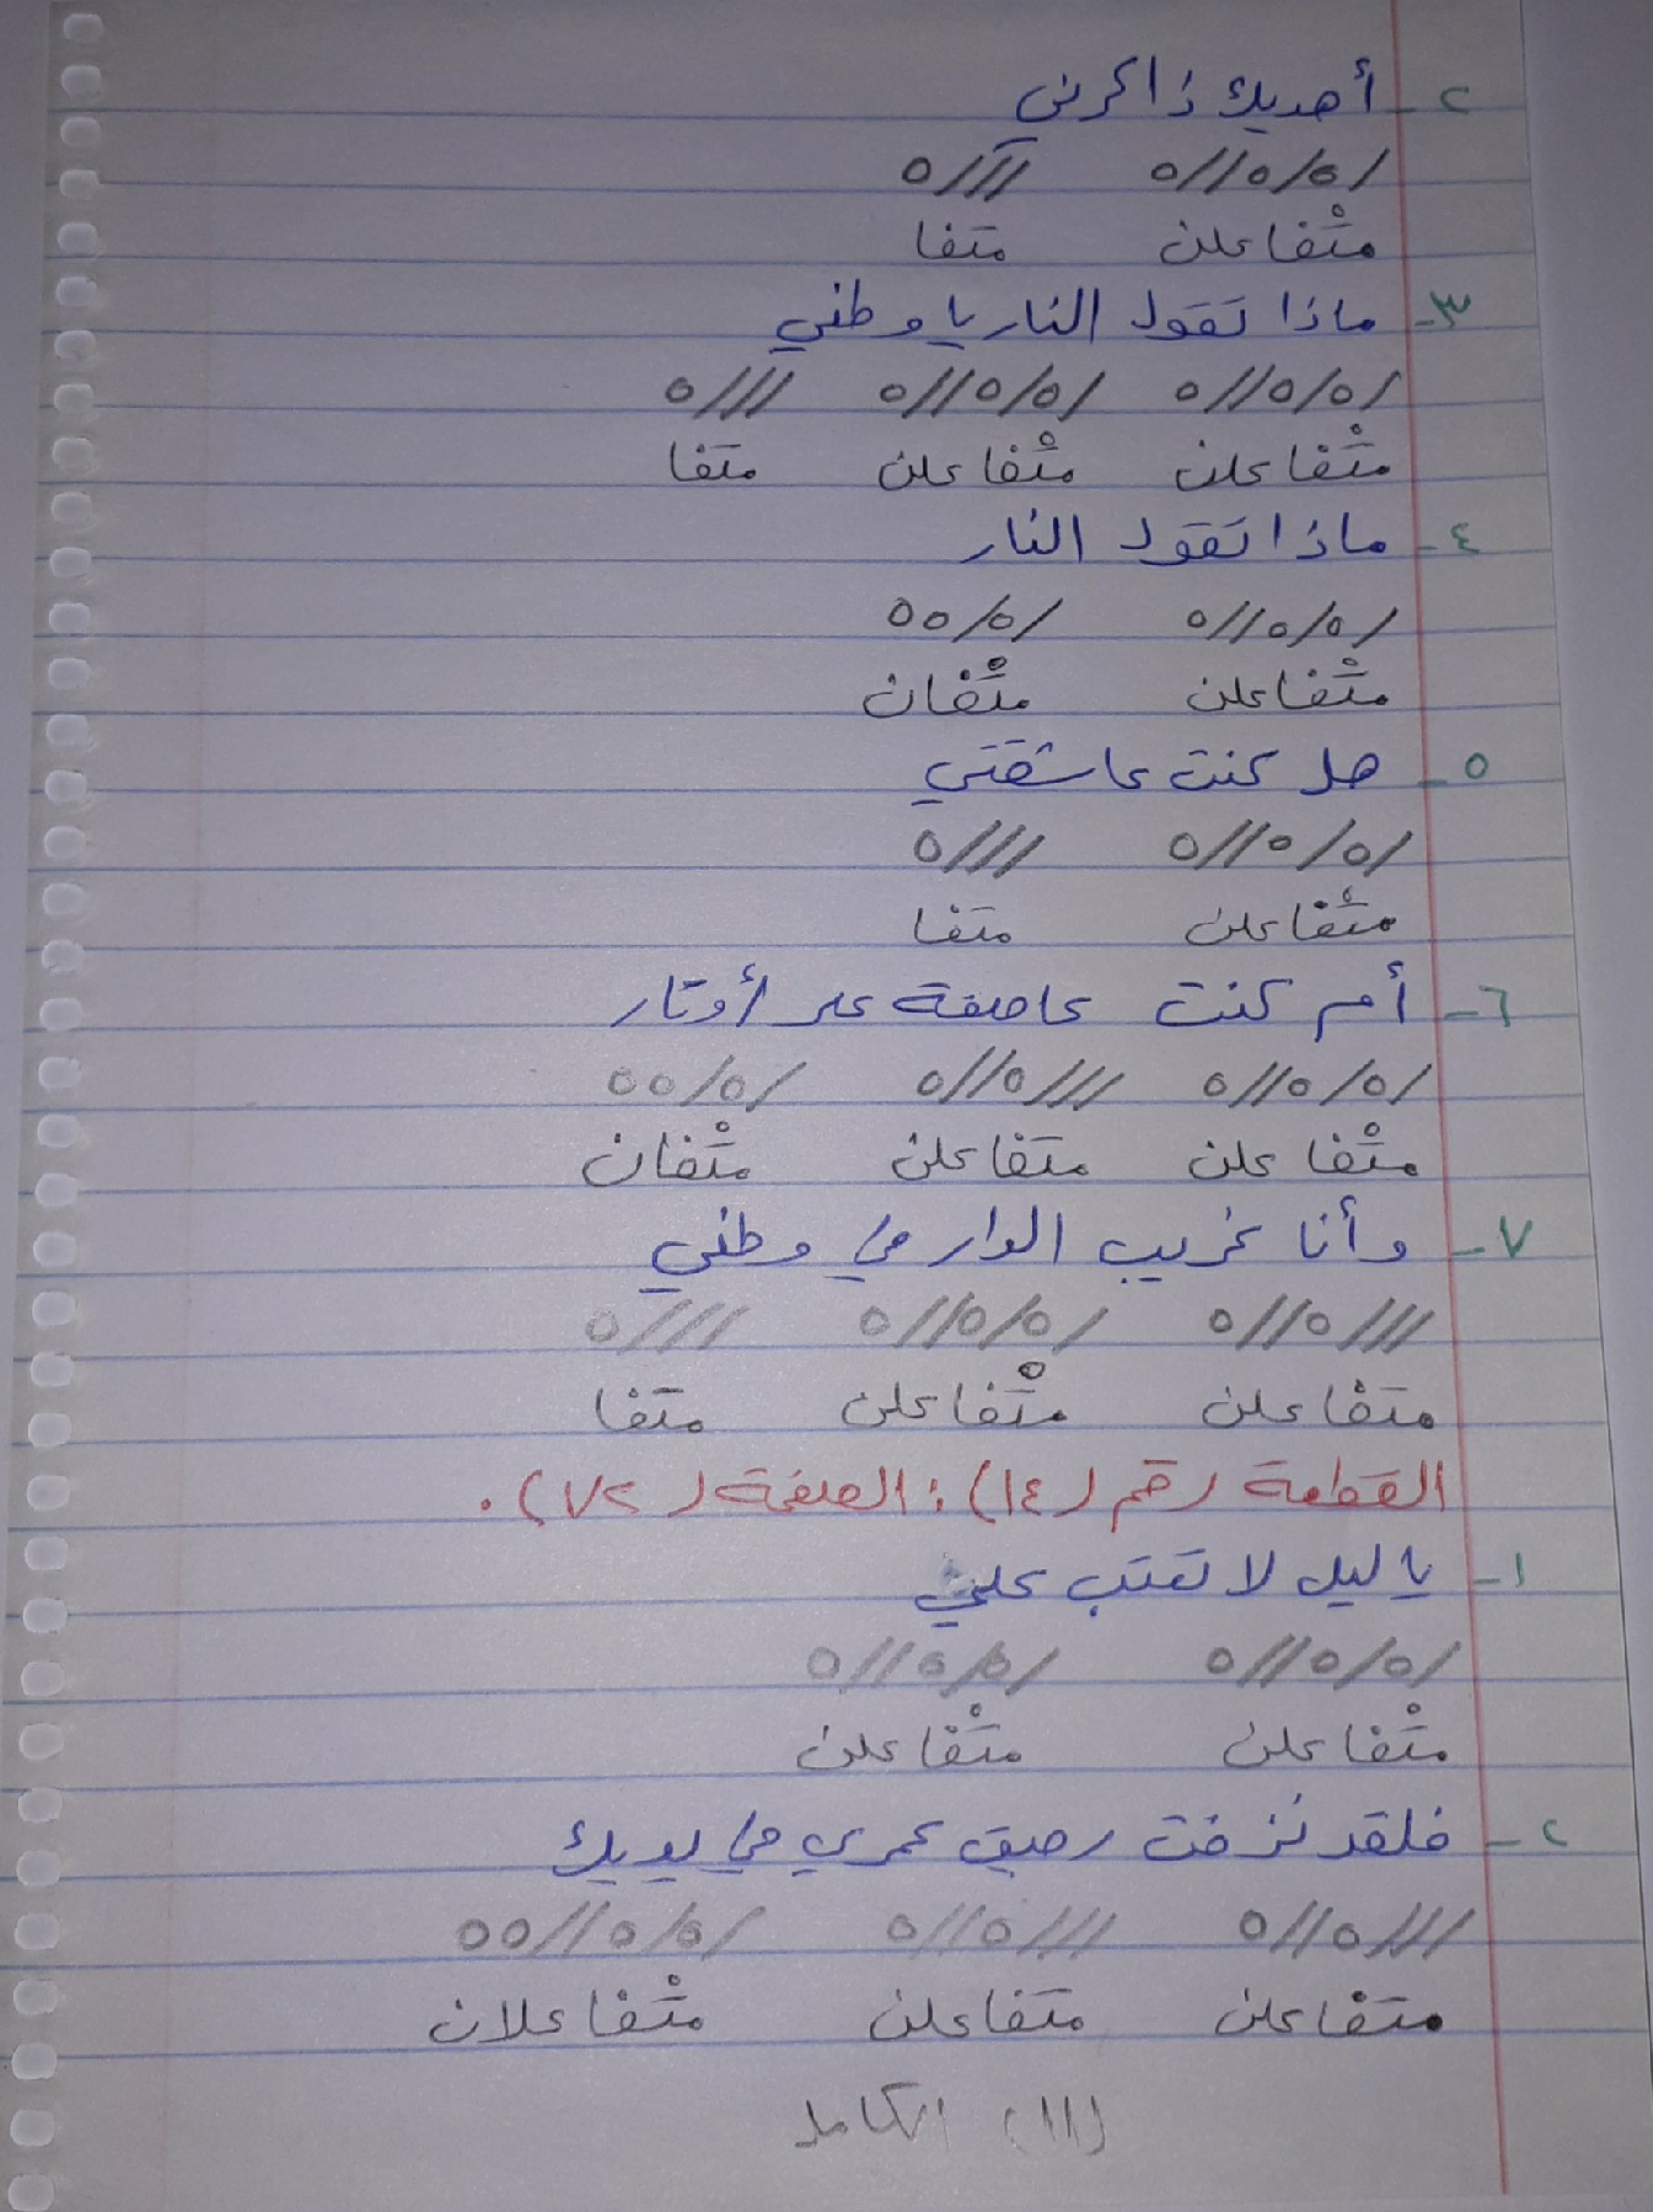 ٢- أهديك ذاكرتي
/٥/٥//٥ ///٥
متْفاعلن متفا
٣- ماذا تقول النار يا وطني
/٥/٥//٥ /٥/٥//٥ ///٥
متْفاعلن متْفاعلن متفا
٤- ماذا تقول النار
/٥/٥//٥ /٥/٥٥
متْفاعلن متْفان
٥- هل كنت عاشقتي
/٥/٥//٥ ///٥
متْفاعلن متفا
٦- أم كنت عاصفة على أوتار
/٥/٥//٥ ///٥//٥ /٥/٥٥
متْفاعلن متفاعلن متْفان
٧- وأنا غريب الدار في وطني
///٥//٥ /٥/٥//٥ ///٥
متفاعلن متْفاعلن متفا
القطعة رقم (١٤) : الصفحة (٧٢) .
١- يا ليل لا تعتب علي
/٥/٥//٥ /٥/٥//٥
متْفاعلن متْفاعلن
٢- فلقد نزفت رحيق عمري في يديك
///٥//٥ ///٥//٥ /٥/٥//٥٥
متفاعلن متفاعلن متْفاعلان
(١١) الكامل